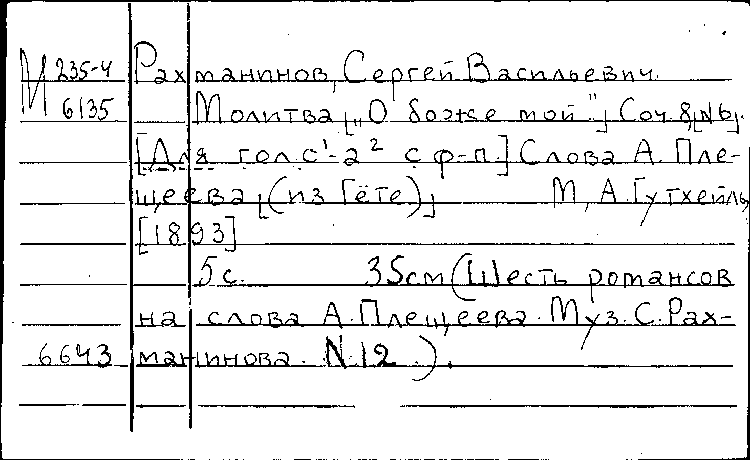 М 235-4 Рахманинов, Сергей Васильевич.
6135 Молитва [„О боже мой"], Соч. 8, [N6].
[Для гол. c¹-a² с ф-п.] Слова А. Пле-
щеева [(из Гёте)] М., А. Гутхейль,
[1893]
5 с. 35 см (Шесть романсов
на слова А. Плещеева. Муз. С. Рах-
6643 манинова. N. 12.).